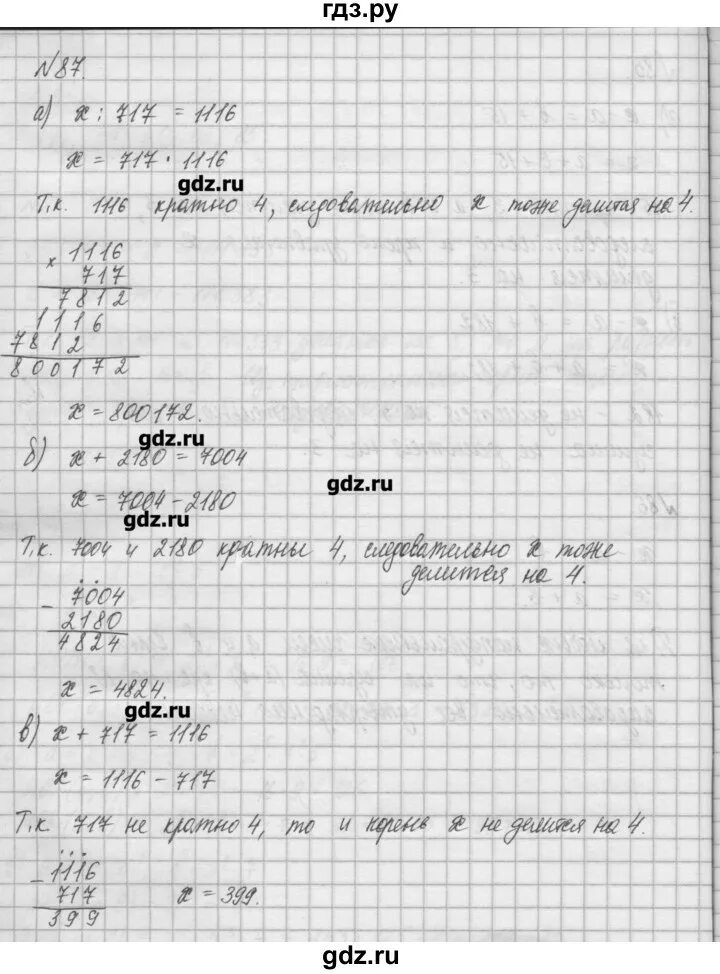 гдз.ру
№87.
а) x : 717 = 1116
x = 717 · 1116
gdz.ru
Т.к. 1116 кратно 4, следовательно x тоже делится на 4.
× 1116
717
7812
1116
7812
800172
x = 800172.
gdz.ru
б) x + 2180 = 7004
gdz.ru
x = 7004 - 2180
gdz.ru
Т.к. 7004 и 2180 кратны 4, следовательно x тоже
делится на 4.
- 7004
2180
4824
x = 4824.
gdz.ru
в) x + 717 = 1116
x = 1116 - 717
Т.к. 717 не кратно 4, то и корень x не делится на 4.
- 1116
717
399
x = 399.
gdz.ru